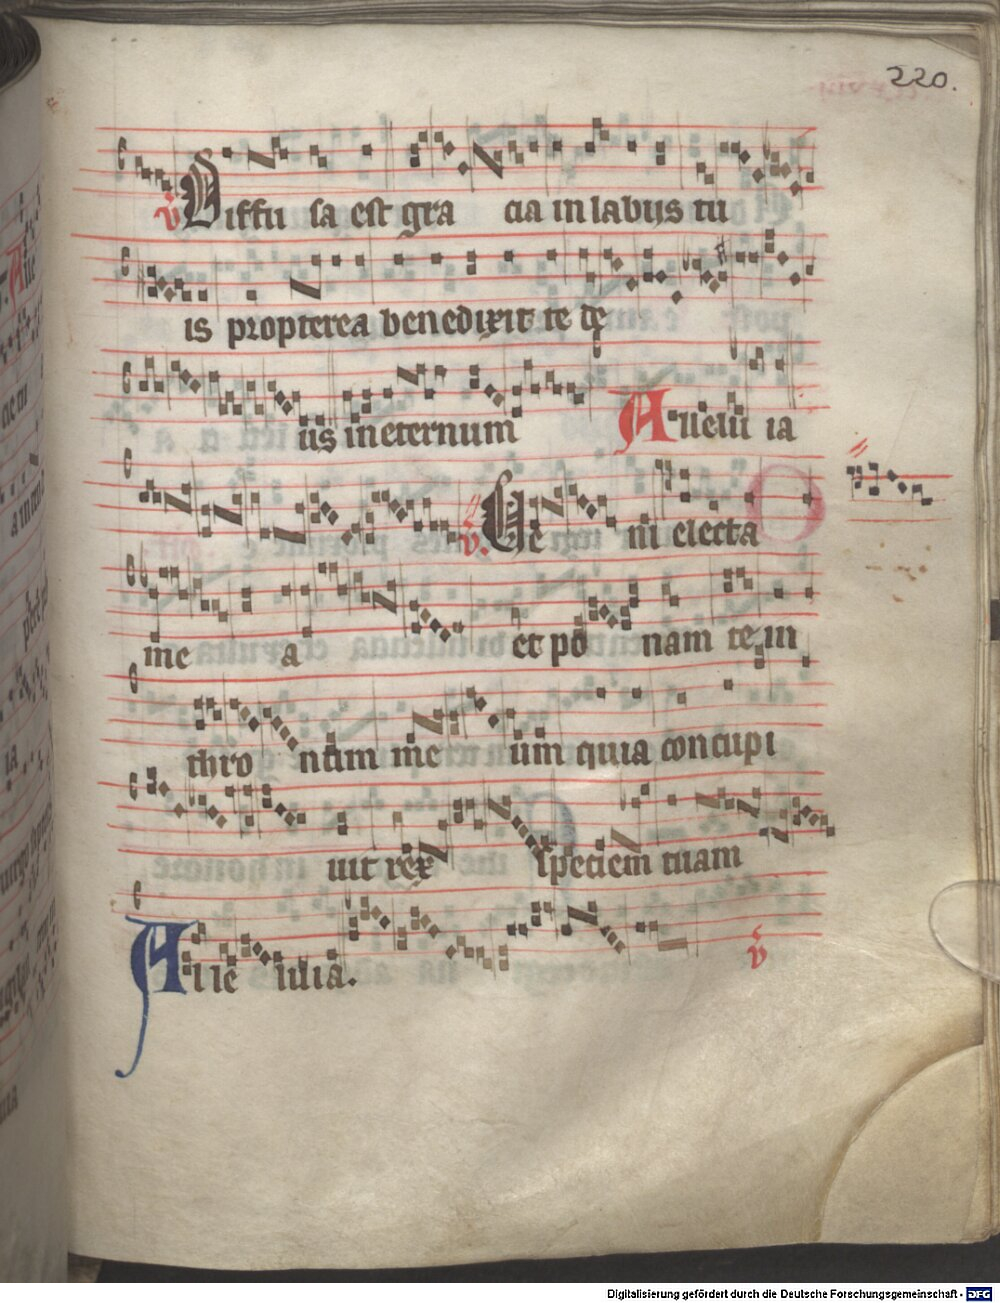 220.
v Diffu sa est gra cia in labijs tu
is propterea benedixit te de
us in eternum Alleluia
v. Ve ni electa
me a et po nam te in
thro num me um quia concupi
uit rex speciem tuam
v
Alle luia.
Digitalisierung gefördert durch die Deutsche Forschungsgemeinschaft - DFG